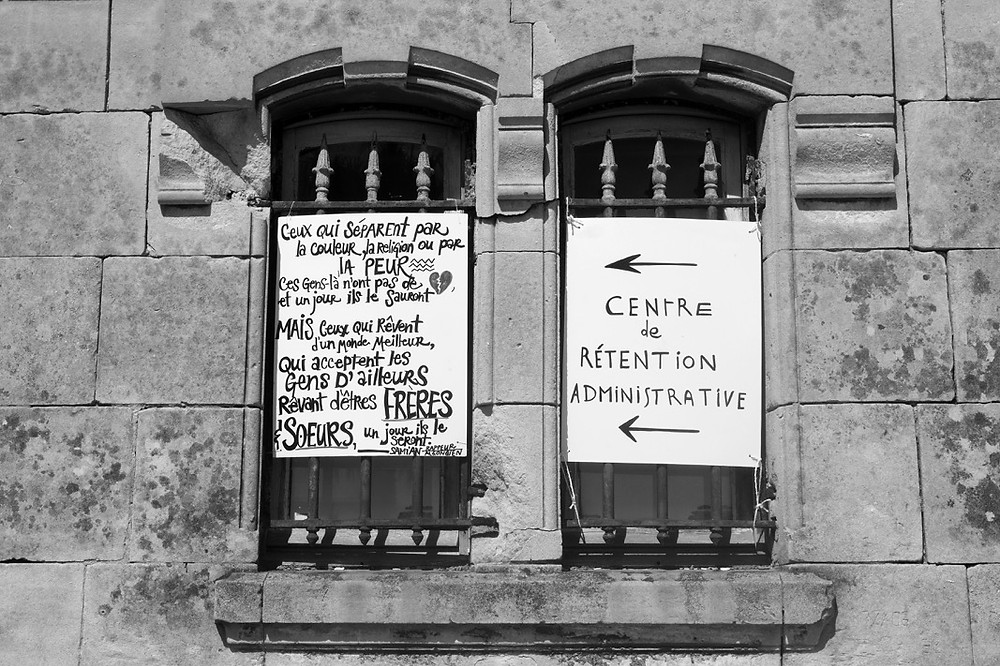 Ceux qui SÉPARENT par
la couleur, la Religion ou par
la PEUR
Ces Gens-là n'ont pas de
et un jour ils le Sauront
MAIS Ceux qui Rêvent
d'un Monde Meilleur,
Qui acceptent les
Gens D'ailleurs
Rêvant d'êtres FRÈRES
& SOEURS, un jour ils le
Seront.
SAMIAN - RAPPEUR
ALGONQUIEN
CENTRE
de
RÉTENTION
ADMINISTRATIVE